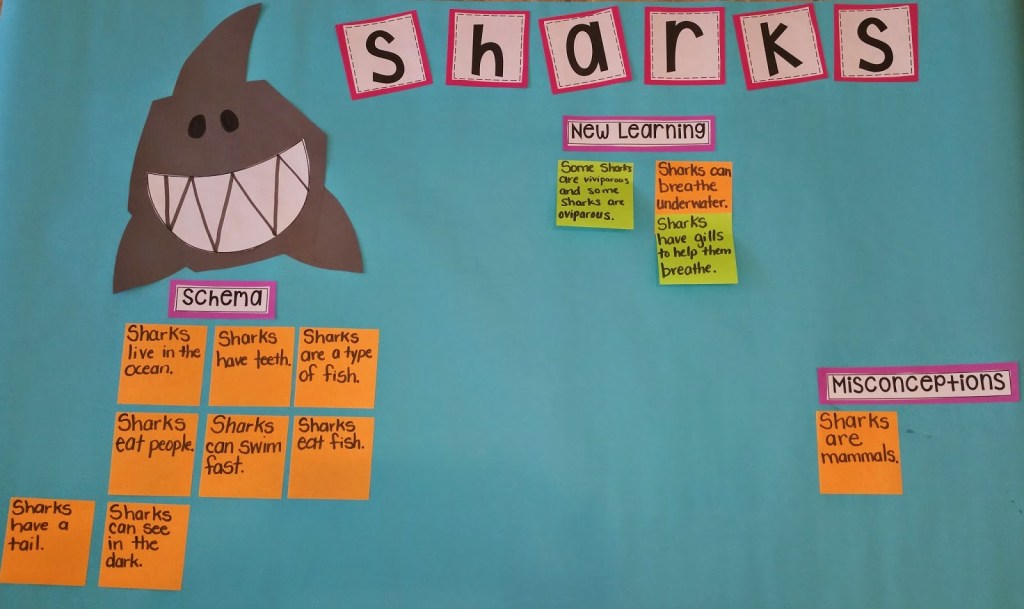 Sharks
New Learning
Some Sharks
are viviparous
and some
sharks are
oviparous.
Sharks can
breathe
underwater.
Sharks
have gills
to help them
breathe.
Schema
Sharks
live in the
ocean.
Sharks
have teeth.
Sharks
are a type
of fish.
Sharks
eat people.
Sharks
can swim
fast.
Sharks
eat fish.
Sharks
have a
tail.
Sharks
can see
in the
dark.
Misconceptions
Sharks
are
mammals.